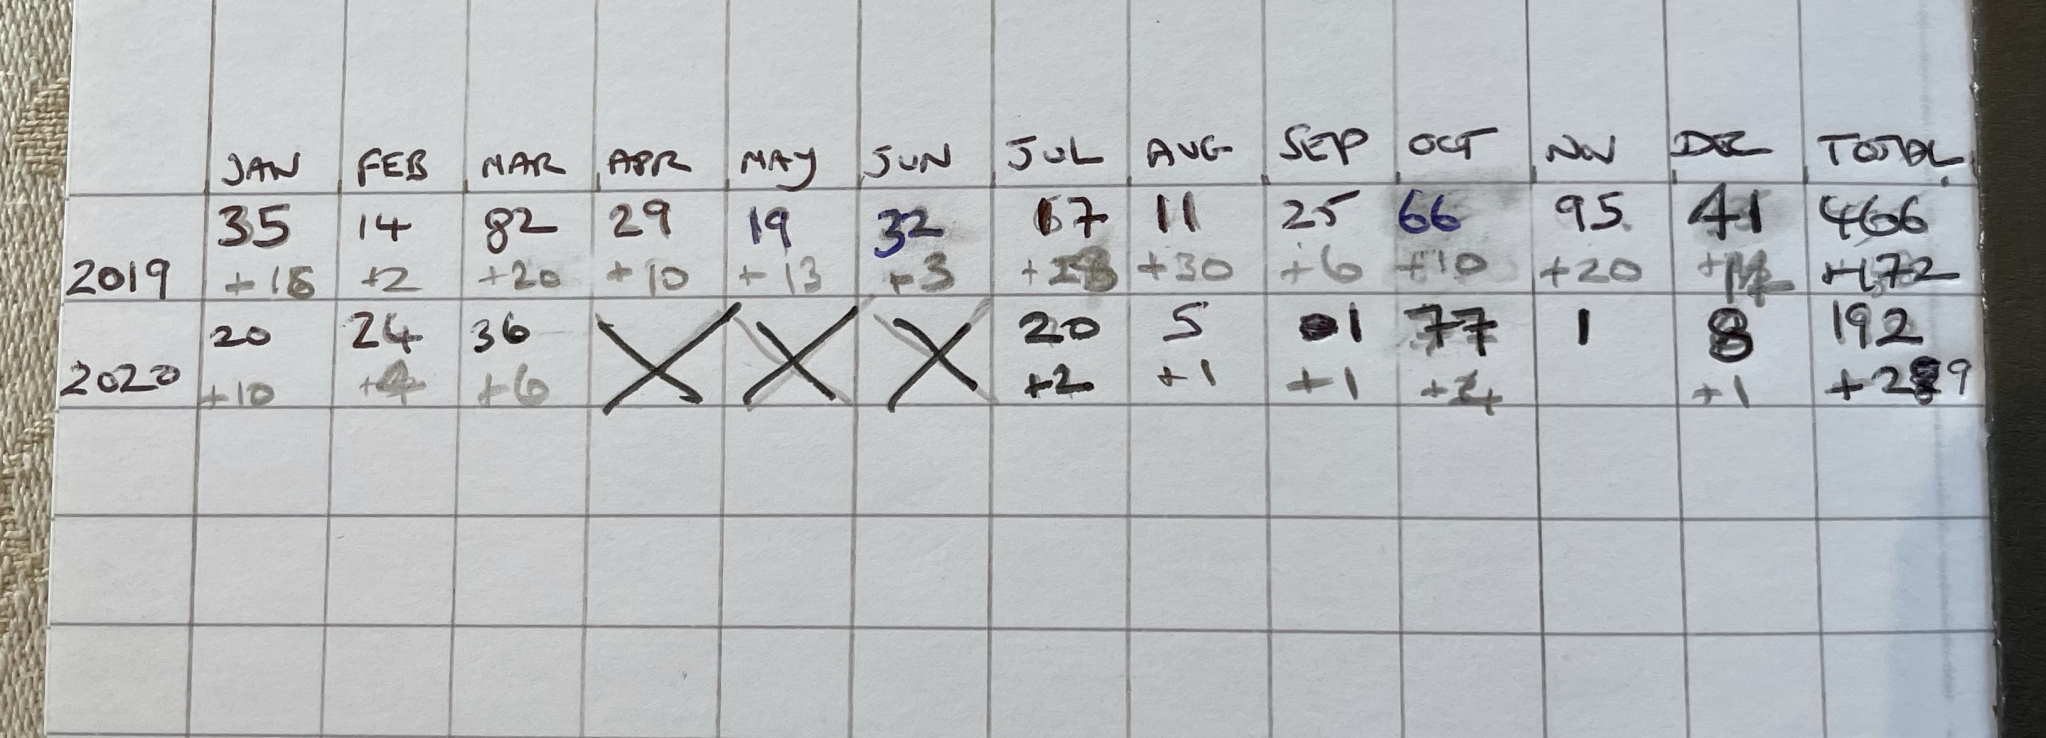 JAN FEB MAR APR MAY JUN JUL AUG SEP OCT NOV DEC TOTAL
35 14 82 29 19 32 17 11 25 66 95 41 466
2019 +18 +2 +20 +10 +13 +3 +30 +6 +10 +20 +172
20 24 36 20 5 1 77 1 8 192
2020 +10 +4 +6 +2 +1 +1 +1 +29